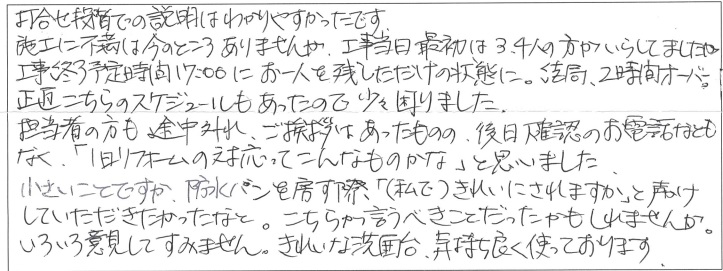 お打合せ段階での説明はわかりやすかったです
施工に不満は今のところありませんが、工事当日最初は3.4人の方がいらしてましたが
工事終了予定時間17:00にお一人を残しただけの状態に。結局、2時間オーバー。
正直こちらのスケジュールもあったので少々困りました。
担当者の方も途中外れ、ご挨拶はあったものの、後日確認のお電話なども
なく、「1日リフォームの対応ってこんなものかな」と思いました
小さいことですが、防水パンを戻す際、「(私で)きれいにされますか」と声がけ
していただきたかったなと。こちらから言うべきことだったかもしれませんが。
いろいろ意見してすみません。きれいな洗面台、気持ち良く使っております